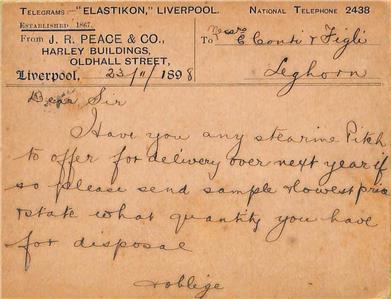 TELEGRAMS—"ELASTIKON," LIVERPOOL. NATIONAL TELEPHONE 2438
ESTABLISHED 1867.
From J. R. PEACE & CO.,
HARLEY BUILDINGS,
OLDHALL STREET,
Liverpool, 23/11/1898
To Messrs E Conti & Figli
Leghorn
Dear Sir
Have you any stearine Pitch
to offer for delivery over next year if
so please send sample & lowest price
& state what quantity you have
for disposal
& oblige